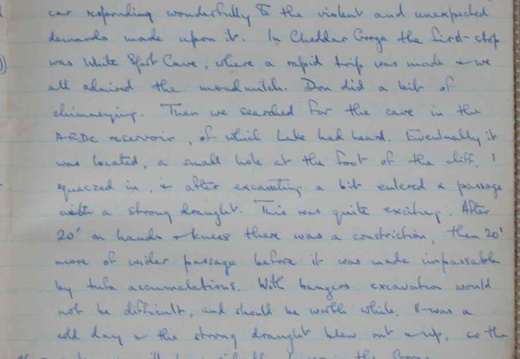 car responding wonderfully to the violent and unexpected
demands made upon it. In Cheddar Gorge the first stop
was White Spot Cave, where a rapid trip was made & we
all admired the moodmilch. Don did a bit of
chimneying. Then we searched for the cave in the
reservoir, of which Luke had heard. Eventually it
was located, a small hole at the foot of the cliff. I
squeezed in, & after excavating a bit entered a passage
with a strong draught. This was quite exciting. After
20' on hands & knees there was a constriction, then 20'
more of wider passage before it was made impassable
by tufa accumulations. With bangers excavation would
not be difficult, and should be worth while. It was a
cold day & the strong draught blew out & up, so the